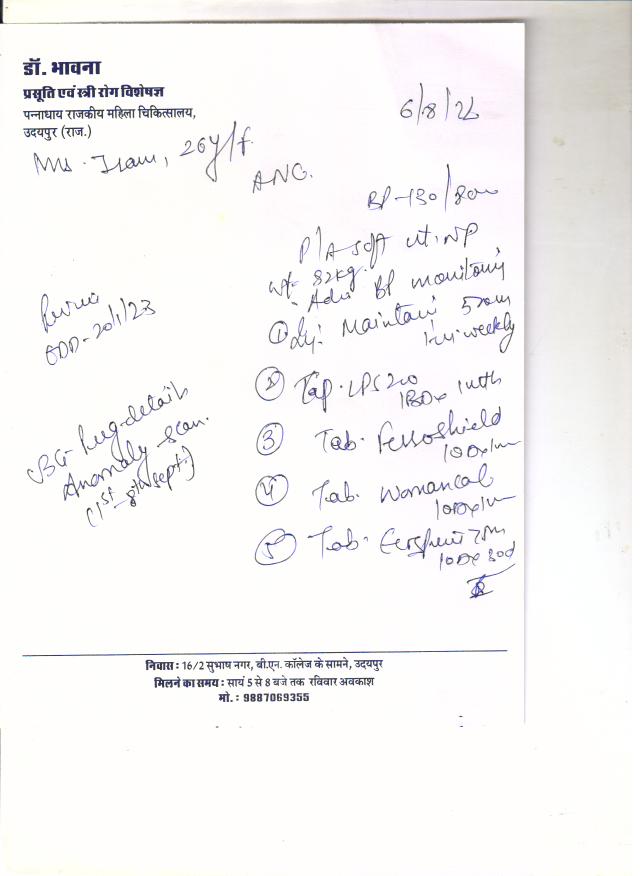 डॉ. भावना
प्रसूति एवं स्त्री रोग विशेषज्ञ
पन्नाधाय राजकीय महिला चिकित्सालय,
उदयपुर (राज.)
6/8/22
Ms. Iram, 26y/f.
ANC.
BP-130/80
P/A soft
wt. 82kg.
Adv BP monitoring
Review
EDD-20/1/23
① Inj. Maintain 500
weekly
② 200
1BD x 1mth
③ Tab. Ferroshield
1OD x 1m
④ Tab. Womancal
1OD x 1m
⑤ Tab. Ecosprin 75m
1OD x 30d
details
Anomaly Scan.
(1st - 8th Sept.)
निवास : 16/2 सुभाष नगर, बी.एन. कॉलेज के सामने, उदयपुर
मिलने का समय : सायं 5 से 8 बजे तक रविवार अवकाश
मो. : 9887069355